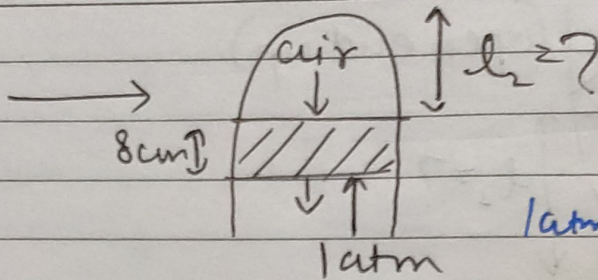 air
l₂ = ?
8cm
1atm
1atm